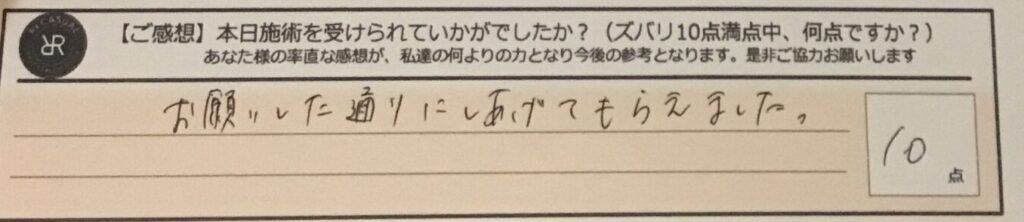 【ご感想】本日施術を受けられていかがでしたか？（ズバリ10点満点中、何点ですか？）
あなた様の率直な感想が、私達の何よりの力となり今後の参考となります。是非ご協力お願いします
お願いした通りにしあげてもらえました。
10
点